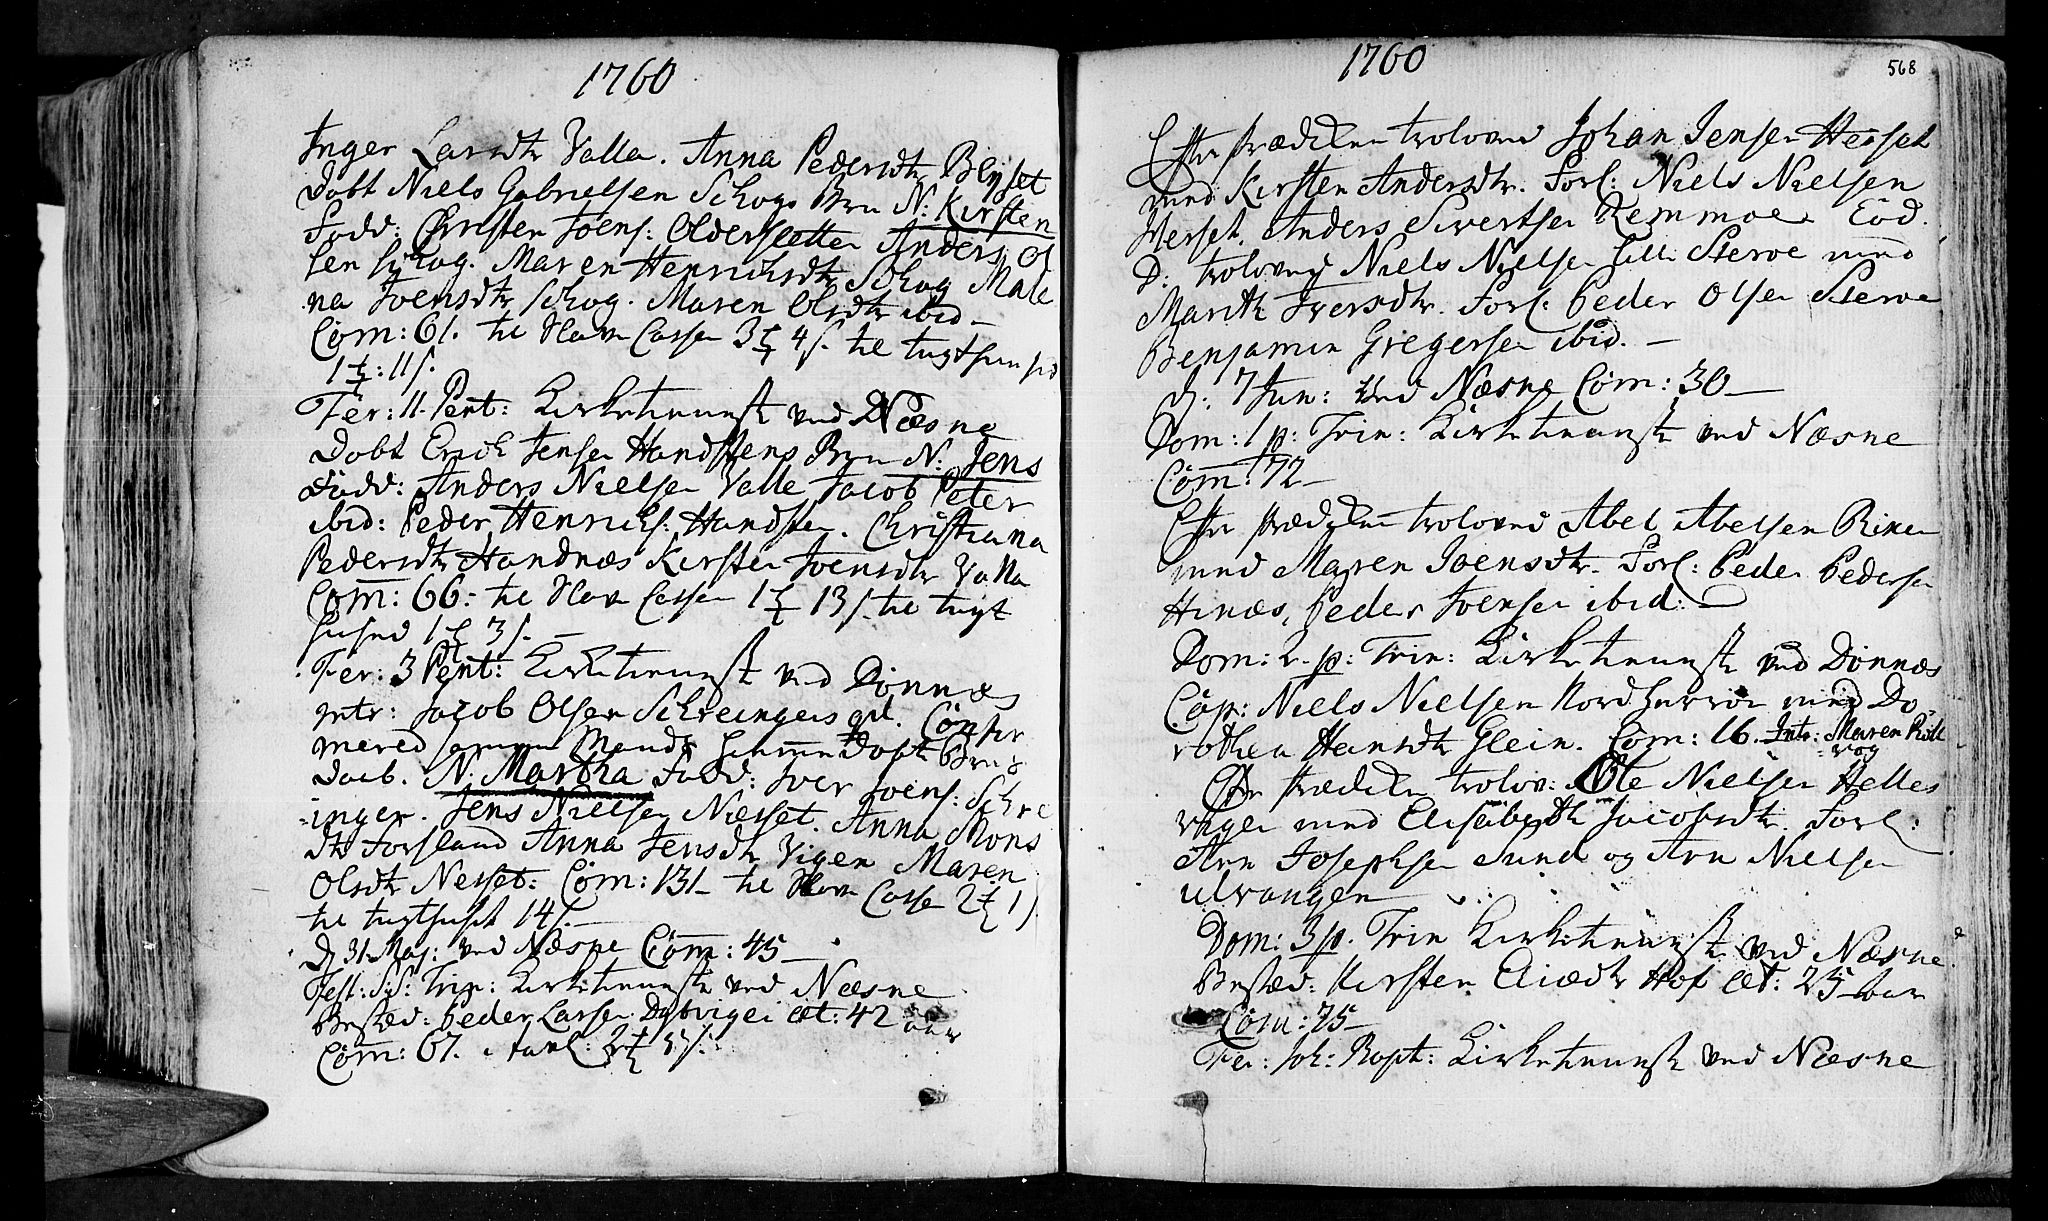 1760
Inger Larsdtr Valla. Anna Pedersdtr Blyset
Døbt Niels Gabrielsen Schogs Brn N: Kirsten
Fadd: Christen Joens: Oldersletten Anders Ol
sen schog. Maren Henrichsdtr Schog Male
na Joensdtr schog. Maren Olsdtr ibid –
Com: 61. til Navn Cassen 3 4 s. til tugthuused
1 : 11 s.
Fer: 11. Pent: Kirketienniste ved Næsne
Døbt Erich Jensen Handstens Brn N: Jens
Fadd: Anders Nielsen Valle Jacob Peter
ibid: Peder Henrichs: Handsten. Christiana
Pedersdtr Handnæs Kirsten Joensdtr Valla
Com: 66: til Cassen 1 13 s. til tugt
huused 1 3 s. –
Fer: 3 Pent: Kirketienniste ved Dønnæs
Intr: Jacob Olsen Schreingers qd. Confir
mered Mends hiemmedøbt Brn
Daab. N. Martha Fadd: Iver Joens: Schre
inger. Jens Nielsen Næsset. Anna Mons
dtr Forsland Anna Jensdtr Vigen Maren
Olsdtr Nesset: Com: 131– til Cassen 2 1 s
til tugthuset 14 s. –
D 31. Maj: ved Næsne Com: 45 –
Fest: SS: Trin: Kirketienniste ved Næsne
Bested: Peder Larsen Dosvigei æt: 42 aar
Com: 67. i tavl: 3 s.
1760
568
Efter prædiken troloved Johan Jensen Herset
med Kirsten Andersdtr. Forl: Niels Nielsen
Herset. Anders Sivertsen Remmoe. Eod.
D. trolovved Niels Nielsen Sterve med
Marith Iversdtr. Forl: Peder Olsen Sterve
Benjamin Gregersen ibid. –
D: 7 Jun: ved Næsne Com: 30 –
Dom: 1 p: Trin: Kirketienniste ved Næsne
Com: 72 –
Efter prædiken trolovved Abel Abelsen
med Maren Joensdtr. Forl: Peder Pedersen
Hinæs, Peder Joensen ibid: –
Dom: 2. p: Trin: Kirketienniste ved Dønnæs
Cop: Niels Nielsen Nordherrøe med Do
rothea Hansdtr Glein. Com: 16. Intr: Maren Röll
vog
Efter prædiken trolov: Ole Nielsen Helles
vigen med Elisabeth Jacobsdtr. Forl:
Arn Josephsen Sund og Arn Nielsen
Ulvangen
Dom: 3 p. Trin Kirketienniste ved Næsne
Bested: Kirsten Eliædtr Hof æt: 25 aar
Com: 75 –
Fer: Joh: Bapt: Kirketienniste ved Næsne